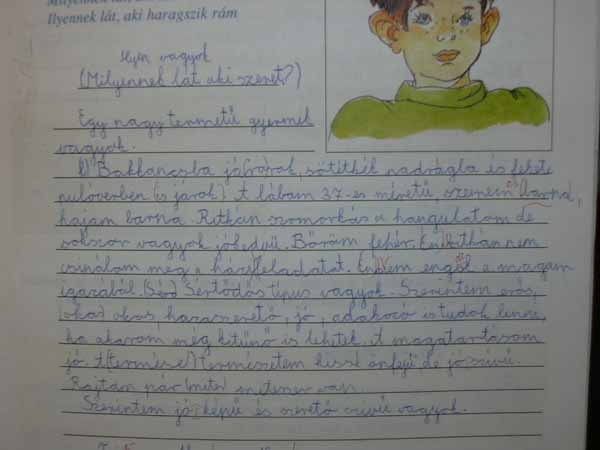 Ilyennek lát, aki haragszik rám
Ilyen vagyok
(Milyennek lát aki szeret?)
Egy nagy termetű gyermek
vagyok.
Bakkancsba járok, sötétkék nadrágba és fekete
pulóverben (is járok) A lábam 37-es méretű, szemem barna,
hajam barna. Ritkán szomorkás a hangulatom de
sokszor vagyok jókedvű. Bőröm fehér. Én ritkán nem
csinálom meg a házi feladatot. Én nem engek a magam
igazából. Sértődős típus vagyok. Szerintem erős,
(okos) okos, hazaszerető, jó, adakozó is tudok lenni,
ha akarom még kitűnő is lehetek. A magatartásom
jó. A (termész) természetem kissé önfejű de jószívű.
Rajtam pár mitesszer van.
Szerintem jó képű és szerető szívű vagyok.